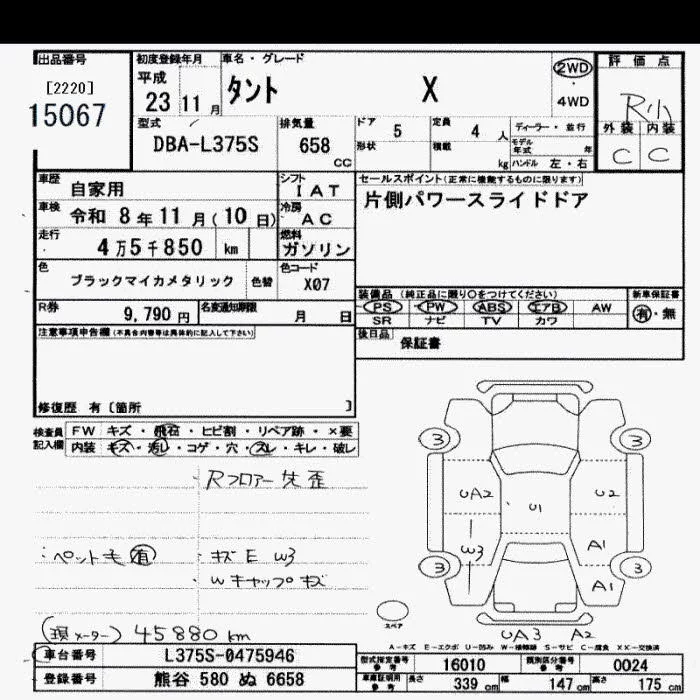 出品番号
[2220]
15067
初度登録年月
平成
23 11 月
車名・グレード
タント X
2WD
4WD
評価点
R小
外装 内装
C C
型式
DBA-L375S
排気量
658
CC
ドア 5
定員 4 人
形状
積載
kg
ディーラー・並行
モデル年式 年
ハンドル 左・右
車歴
自家用
シフト
IAT
セールスポイント(正常に機能するものに限ります)
片側パワースライドドア
車検
令和 8 年 11 月(10 日)
冷房
AC
走行
4 万 5 千 850 km
燃料
ガソリン
色
ブラックマイカメタリック
色替
色コード
X07
R券
9,790 円
名変通知期限
月 日
装備品(純正品に限り○をつけてください)
PS PW ABS エアB AW
SR ナビ TV カワ
新車保証書
有・無
後日品
保証書
注意事項申告欄(不具合内容等は具体的に記入して下さい)
修復歴 有〔箇所 〕
検査員記入欄
FW キズ・飛石・ヒビ割・リペア跡・×要
内装 キズ・汚レ・コゲ・穴・スレ・キレ・破レ
Rフロアー先歪
ペット毛 有
・キズ E W3
・Wキャップキズ
3 3
UA2 U1 U2
W3 A1
3 3
A1
スペア
UA3 A2
(現メーター) 45880 km
A-キズ E-エクボ U-凹み W-補修跡 S-サビ C-腐食 XX-交換済
車台番号
L375S-0475946
型式指定番号
参考
16010
類別区分番号
参考
0024
登録番号
熊谷 580 ぬ 6658
車庫証明用
参考
長さ 339 cm 幅 147 cm 高さ 175 cm